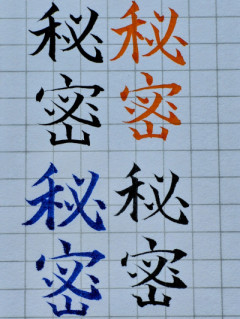 秘密
秘密
秘密
秘密